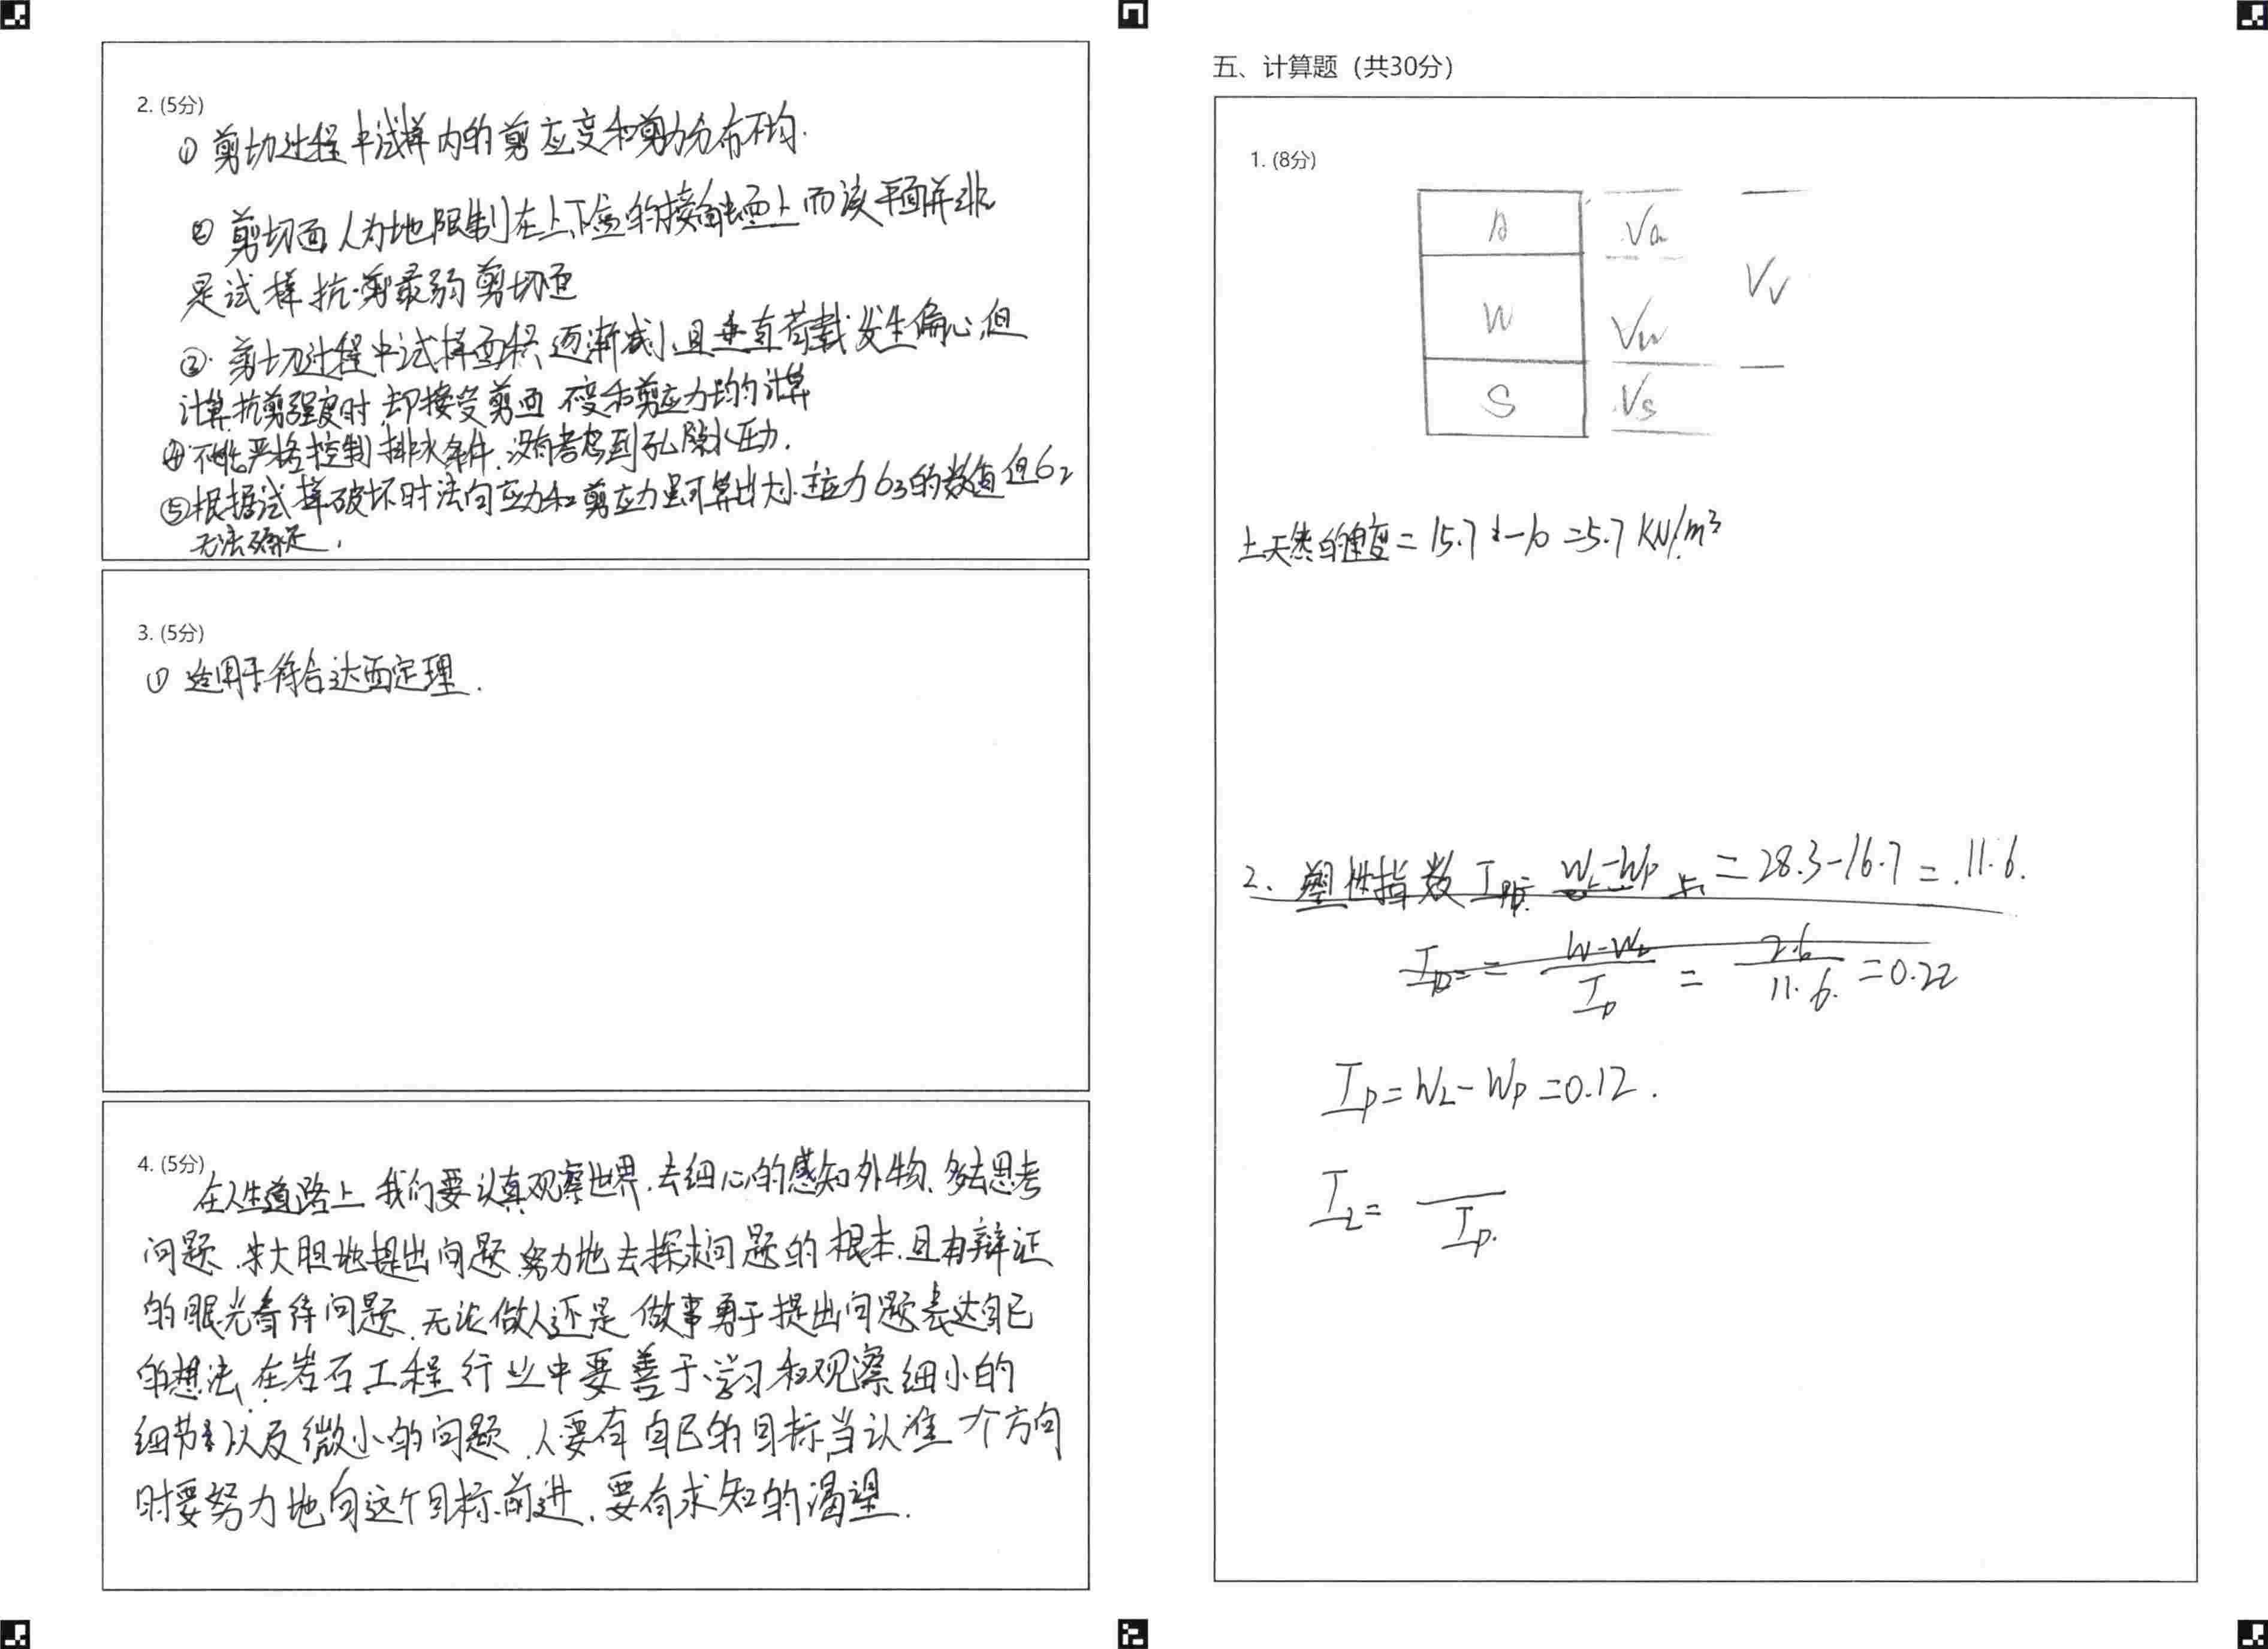 2. (5分)
① 剪切过程中试样内的剪应变和剪力分布不均.
② 剪切面人为地限制在上下盒的接触面上而该平面并非
是试样抗剪最弱剪切面
③. 剪切过程中试样面积逐渐减小,且垂直荷载发生偏心,但
计算抗剪强度时,却按受剪面不变和剪应力均匀计算
④不能严格控制排水条件,没有考虑到孔隙水压力.
⑤根据试样破坏时法向应力和剪应力虽可算出大小主应力б3的数值但б2
无法确定.
3. (5分)
① 适用于符合达西定理.
4. (5分)
在人生道路上,我们要认真观察世界.去细心的感知外物、多去思考
问题.大胆地提出问题.努力地去探求问题的根本.且有辩证
的眼光看待问题.无论做人还是做事勇于提出问题表达自己
的想法,在岩石工程行业中要善于学习和观察细小的
细节以及微小的问题.人要有自己的目标,当认准一个方向
时要努力地向这个目标前进.要有求知的渴望.
五、计算题（共30分）
1. (8分)
A Va
Vv
W Vw
S Vs
土天然的重度= 15.7-10 =5.7 KN/m³
2、塑性指数 Ip= WL-Wp = 28.3-16.7 = 11.6.
= W-WL / Ip = 2.6 / 11.6. =0.22
Ip = WL - Wp =0.12.
IL = / Ip.